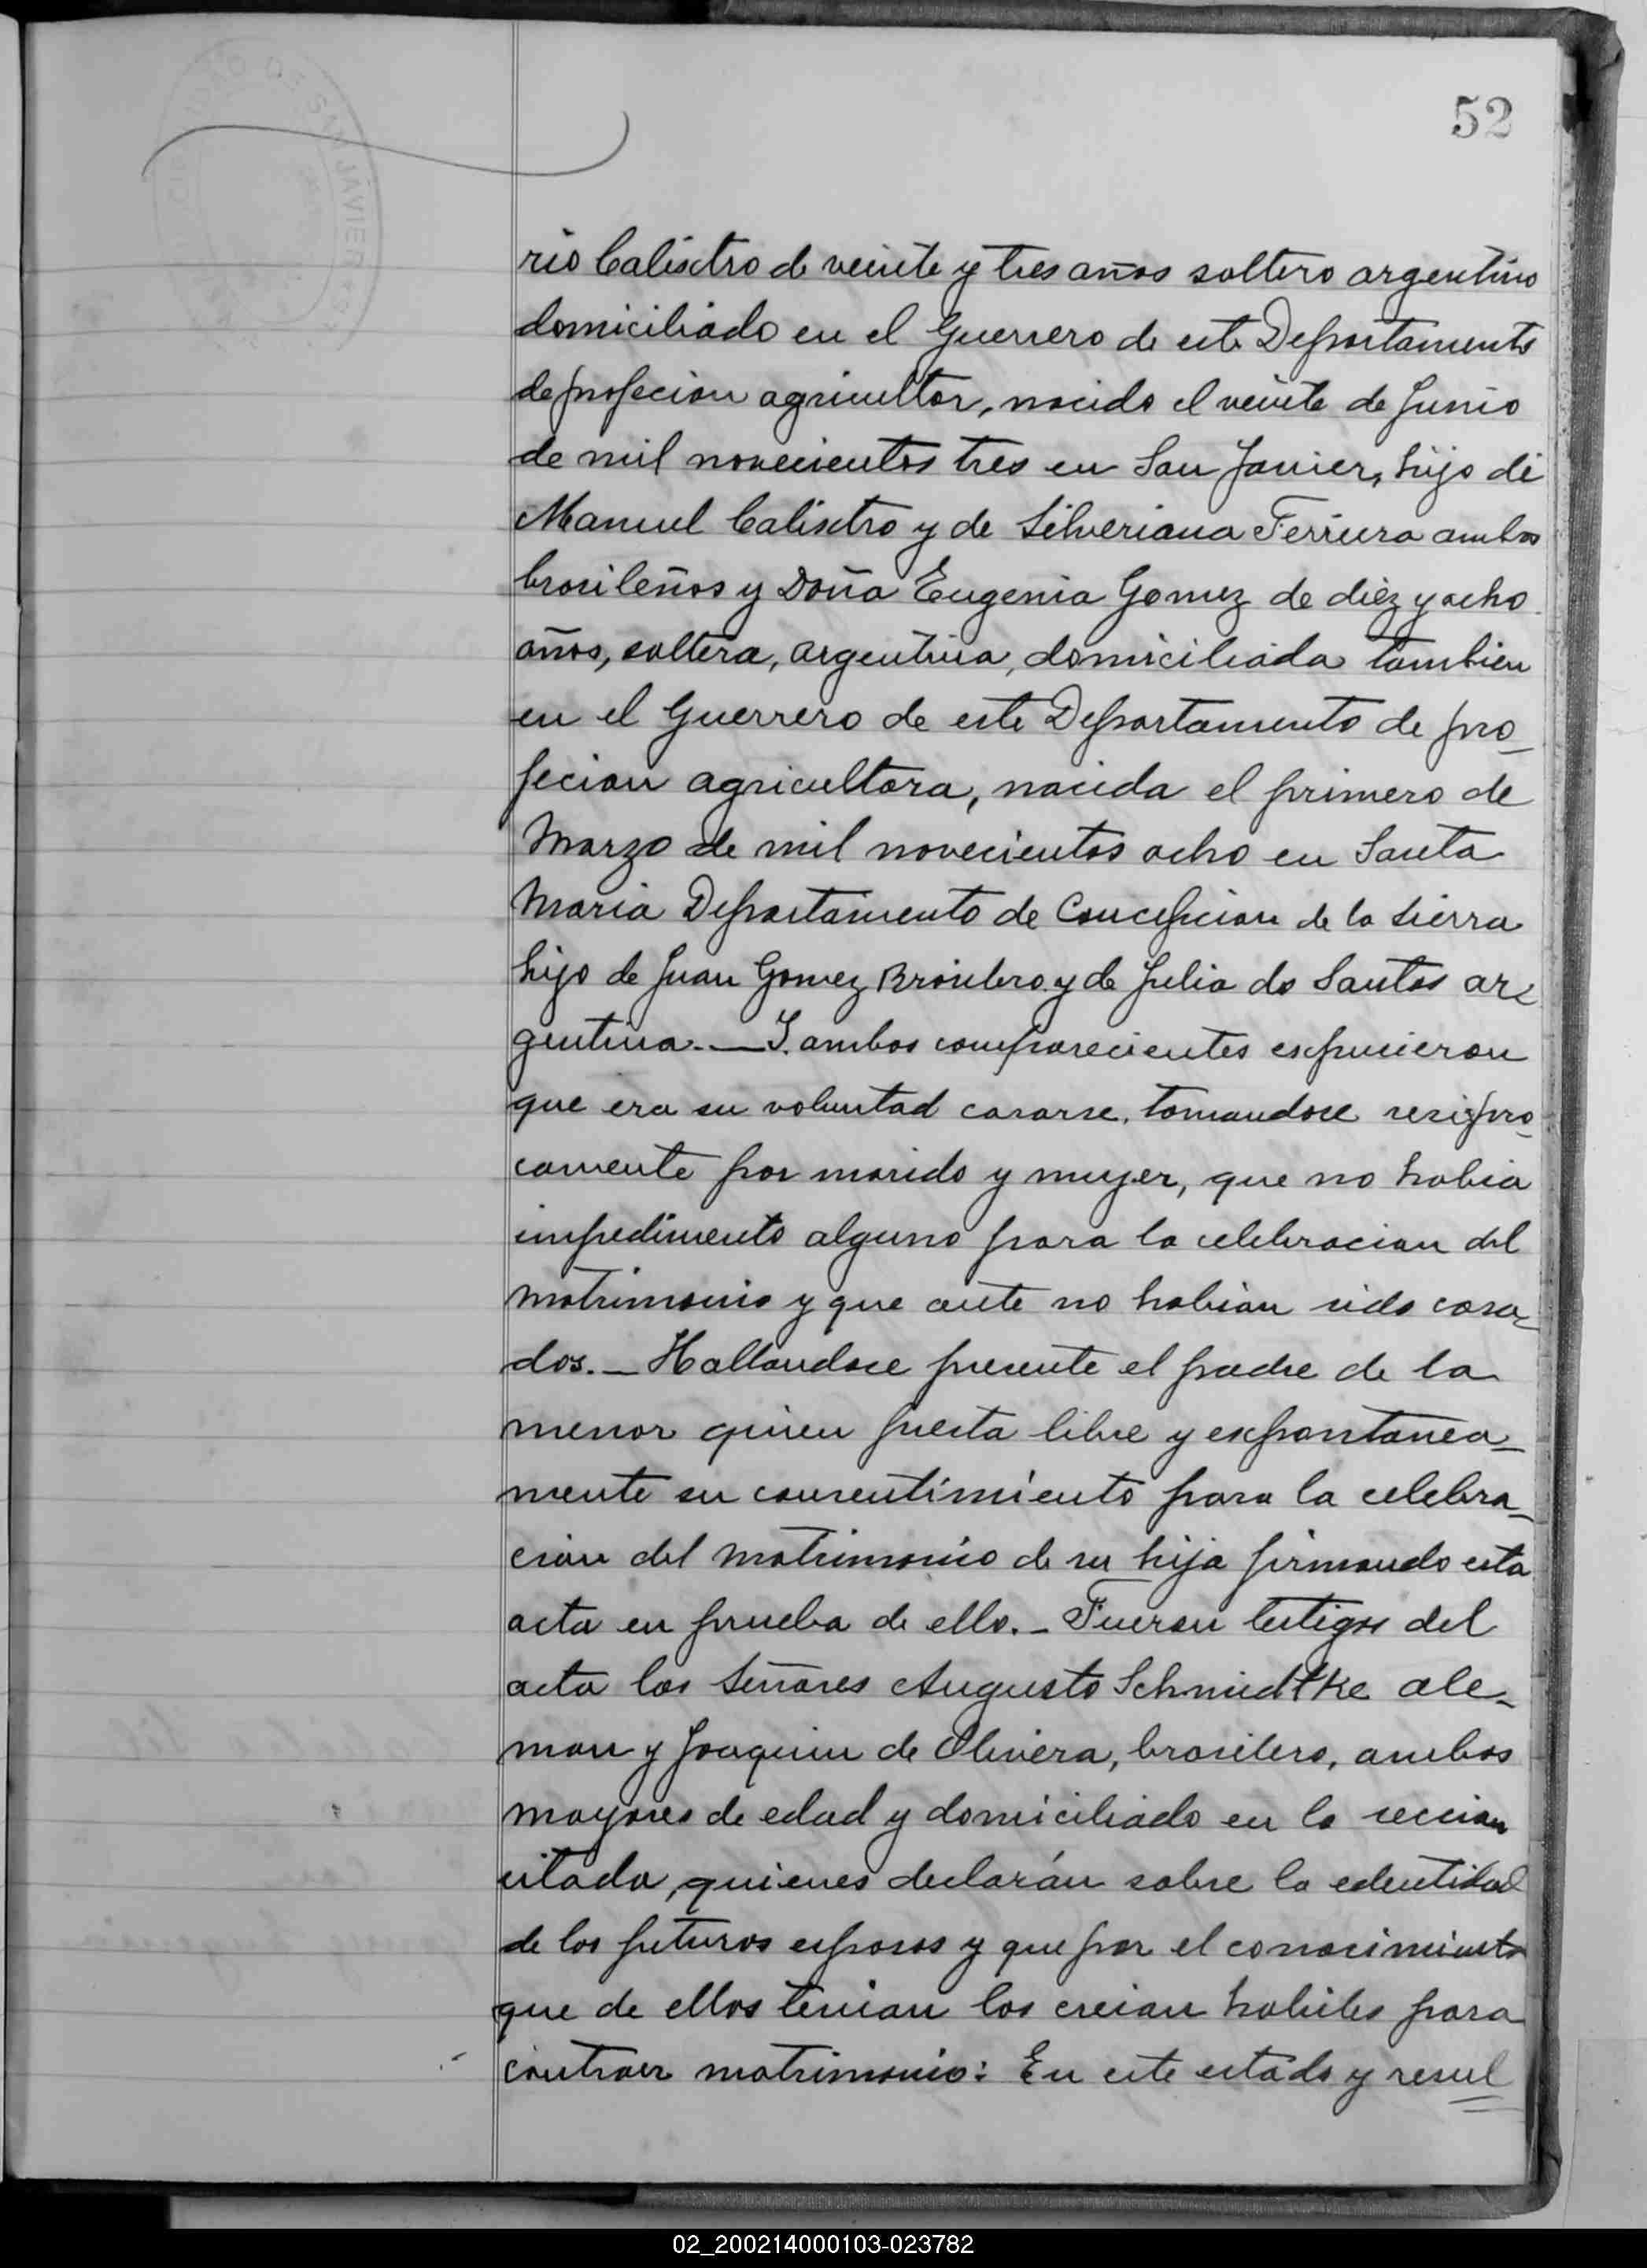 52
rio Calisctro de veinte y tres años soltero argentino
domiciliado en el Guerrero de este Departamento
de profecion agricultor, nacido el veinte de Junio
de mil novecientos tres en San Javier, hijo de
Manuel Calisctro y de Silveriana Ferriera ambos
brasileños y Doña Eugenia Gomez de diez y ocho
años, soltera, argentina, domiciliada tambien
en el Guerrero de este Departamento de pro_
fecion agricultora, nacida el primero de
Marzo de mil novecientos ocho en Santa
Maria Departamento de Concepcion de la Sierra
hijo de Juan Gomez Brasilero y de Julia do Santos ar_
gentina._ Y ambos comparecientes expucieron
que era su voluntad casarse, tomandose resipro_
camente por marido y mujer, que no habia
impedimento alguno para la celebracion del
matrimonio y que ante no habian sido casa_
dos._ Hallandose presente el padre de la
menor quien presta libre y expontanea_
mente su consentimiento para la celebra_
cion del matrimonio de su hija firmando esta
acta en prueba de ello._ Fueron testigos del
acta los Señores Augusto Schmidtke ale_
man y Joaquin de Olivera, brasilero, ambos
mayores de edad y domiciliado en la seccion
citada, quienes declarán sobre la edentidad
de los futuros esposos y que por el conocimiento
que de ellos tenian los creian habiles para
contraer matrimonio: En este estado y resul
02_200214000103-023782